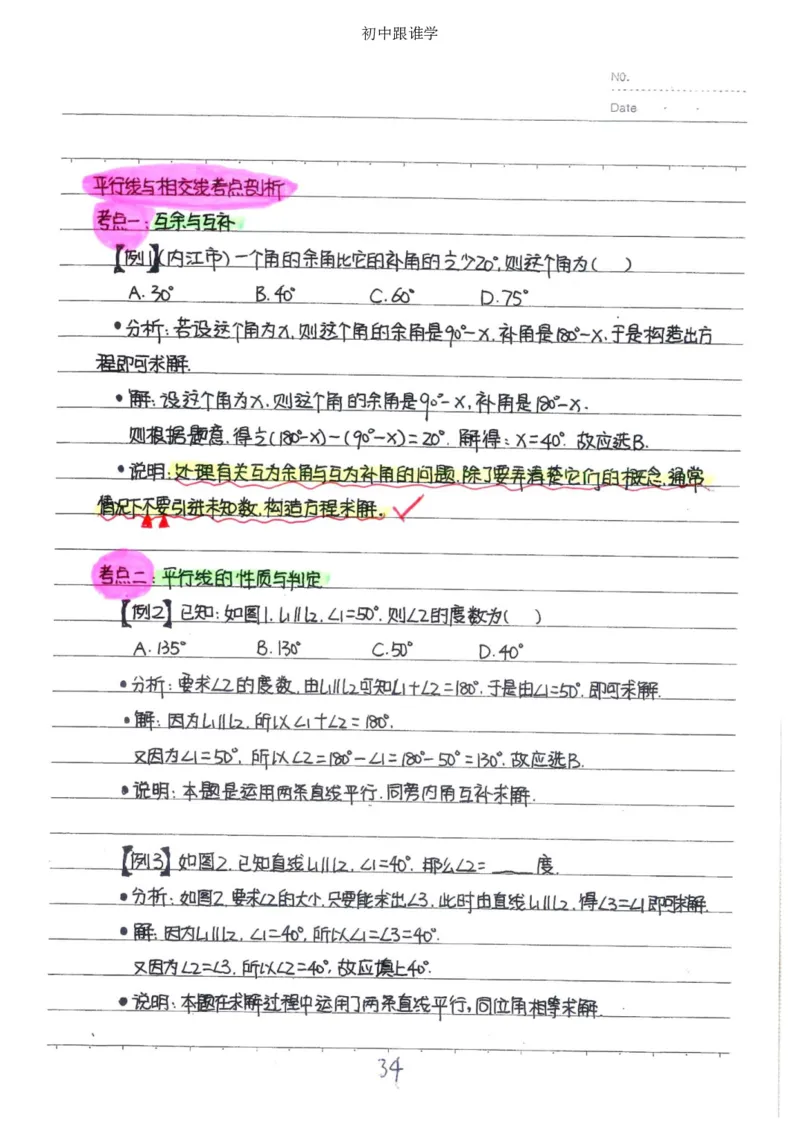 初中跟谁学
NO.
Date
平行线与相交线考点剖析
考点一:互余与互补
【例1】(内江市)一个角的余角比它的补角的½少20°,则这个角为( )
A.30° B.40° C.60° D.75°
•分析:若设这个角为x,则这个角的余角是90°-x,补角是180°-x,于是构造出方
程即可求解.
•解:设这个角为x,则这个角的余角是90°-x,补角是180°-x.
则根据题意,得½(180°-x)-(90°-x)=20°.解得:x=40°.故应选B.
•说明:处理有关互为余角与互为补角的问题,除了要弄清楚它们的概念,通常
情况下不要引进未知数,构造方程求解.
考点二:平行线的性质与判定
【例2】已知:如图1,L1∥L2,∠1=50°,则∠2的度数为( )
A.135° B.130° C.50° D.40°
•分析:要求∠2的度数,由L1∥L2可知∠1+∠2=180°,于是由∠1=50°,即可求解.
•解:因为L1∥L2,所以∠1+∠2=180°.
又因为∠1=50°,所以∠2=180°-∠1=180°-50°=130°.故应选B.
•说明:本题是运用两条直线平行,同旁内角互补求解.
【例3】如图2,已知直线L1∥L2,∠1=40°,那么∠2=____度.
•分析:如图2,要求∠2的大小,只要能求出∠3,此时由直线L1∥L2,得∠3=∠1即可求解.
•解:因为L1∥L2,∠1=40°,所以∠1=∠3=40°.
又因为∠2=∠3,所以∠2=40°,故应填上40°.
•说明:本题在求解过程中运用了两条直线平行,同位角相等求解.
34